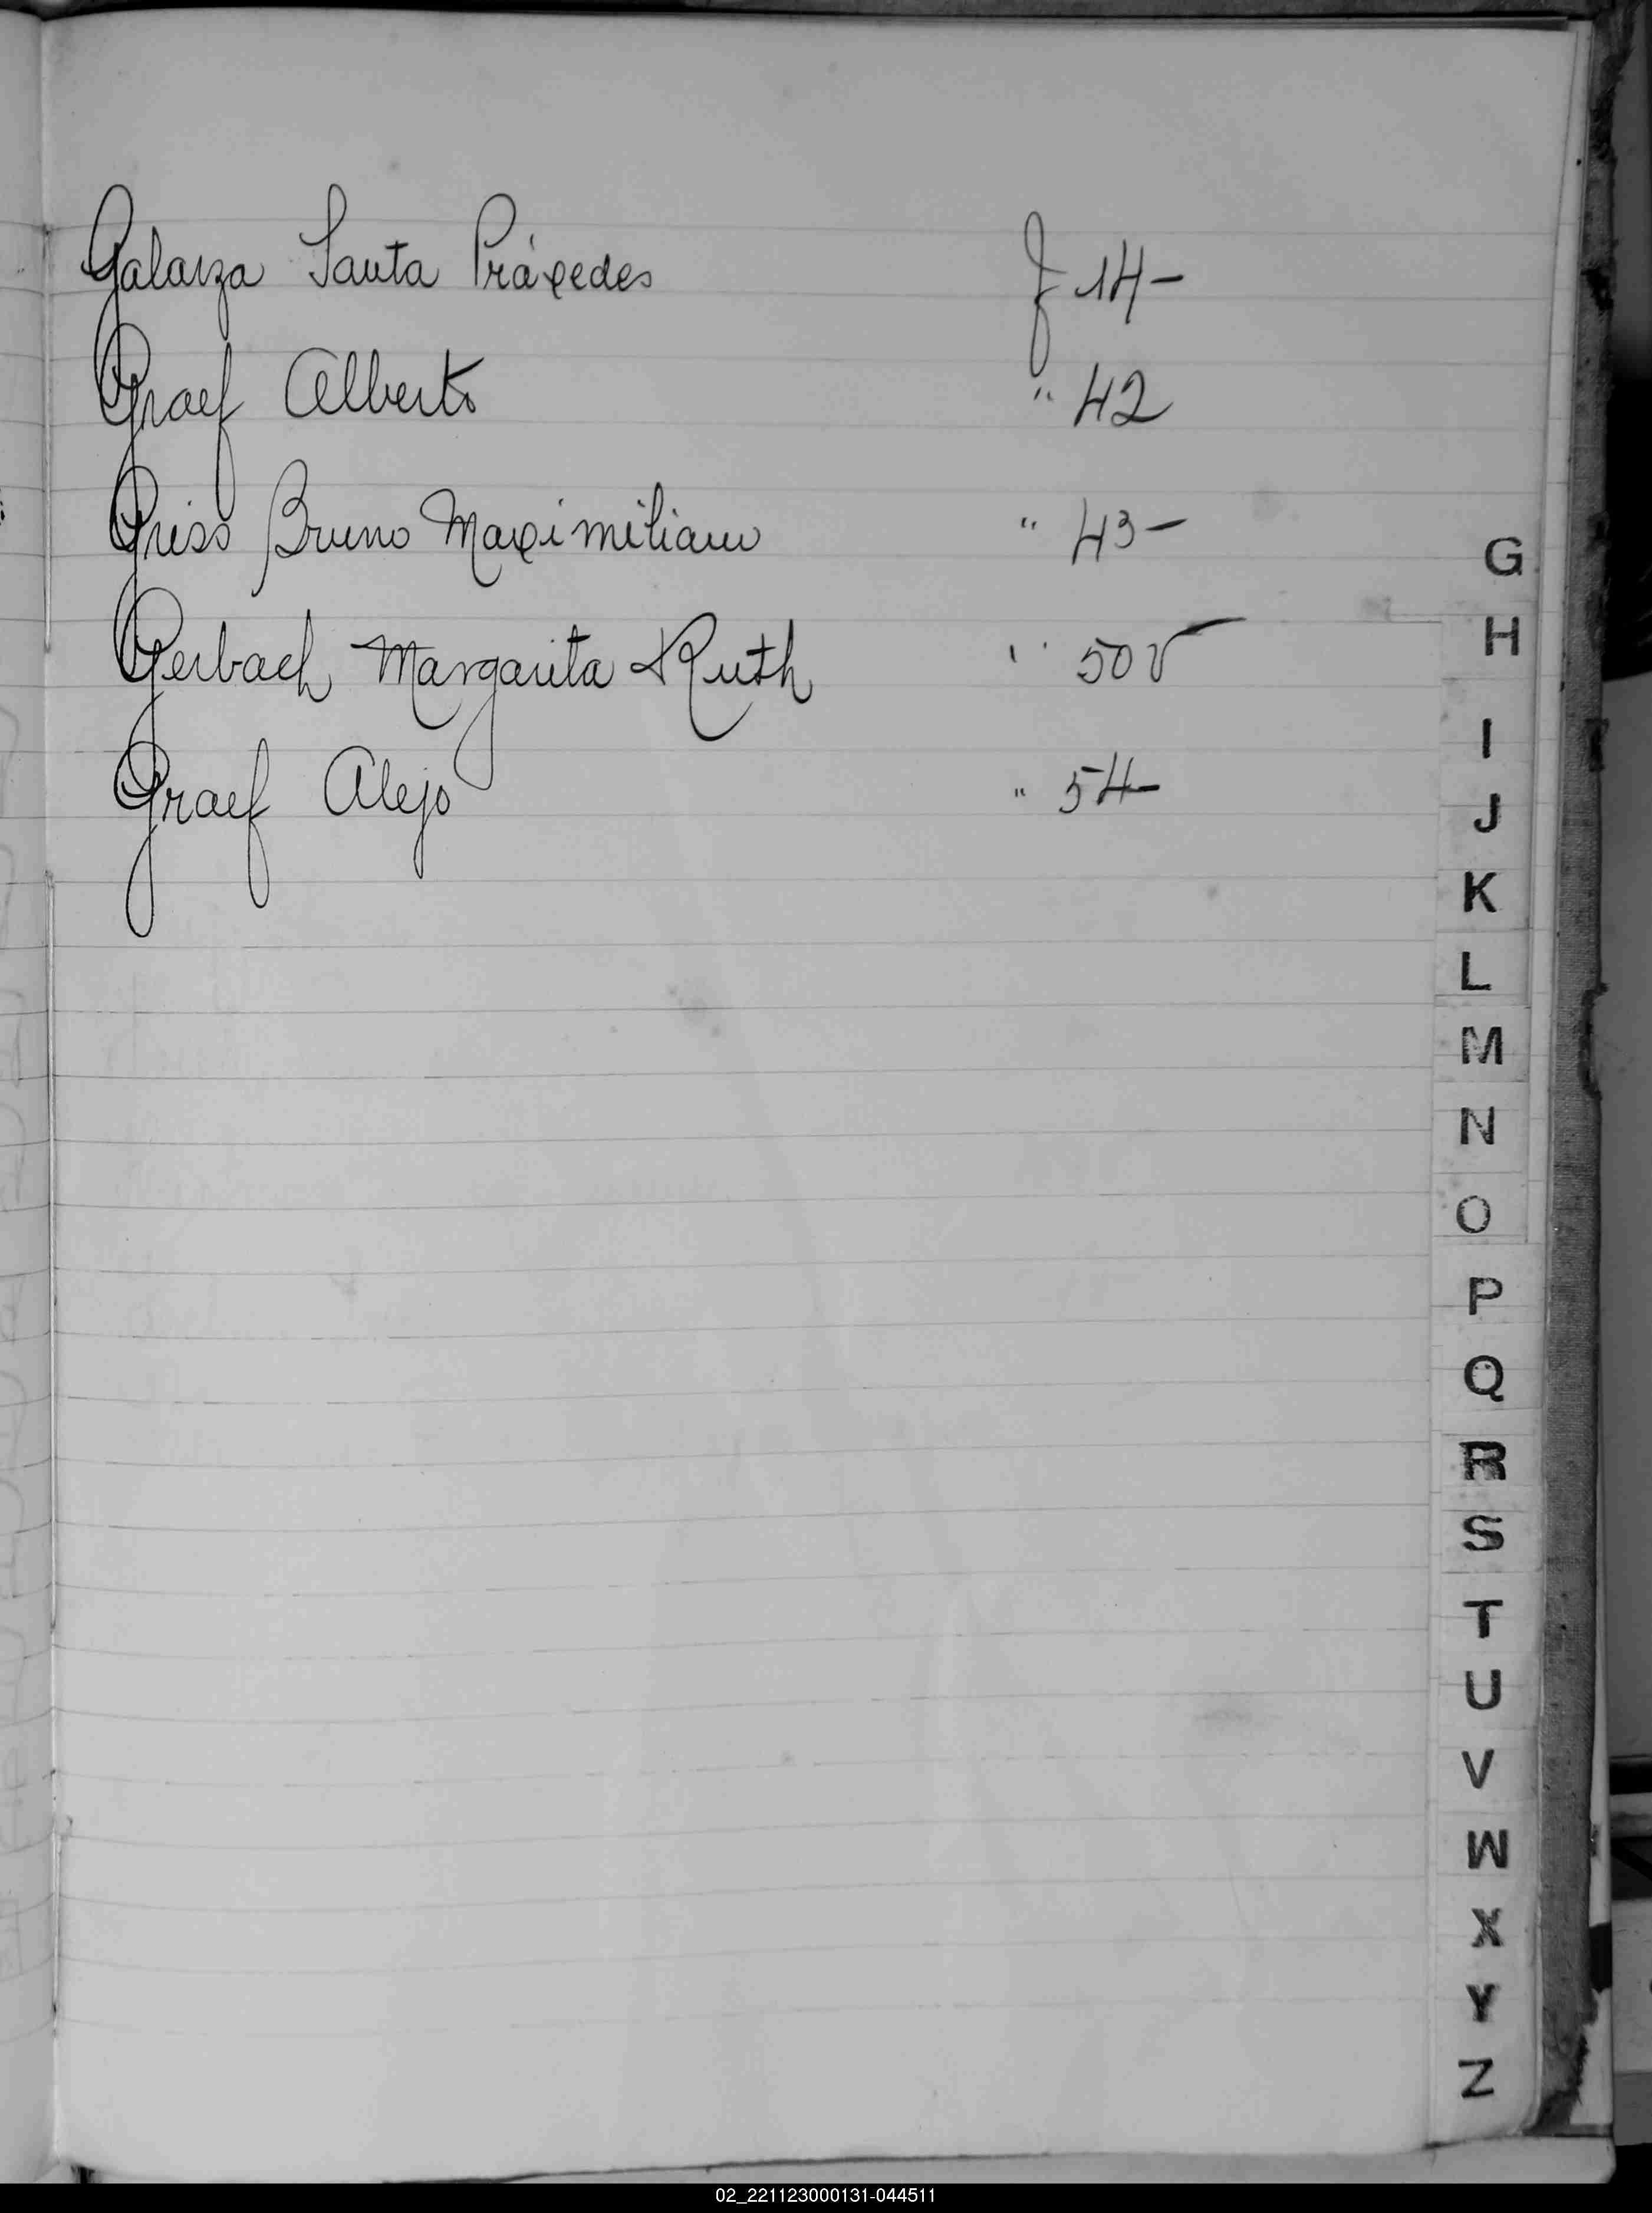 Galarza Santa Práxedes f 14-
Graef Alberto " 42
Griss Bruno Maximiliano " 43-
Gerbach Margarita Ruth " 50v
Graef Alejo " 54-
G
H
I
J
K
L
M
N
O
P
Q
R
S
T
U
V
W
X
Y
Z
02_221123000131-044511